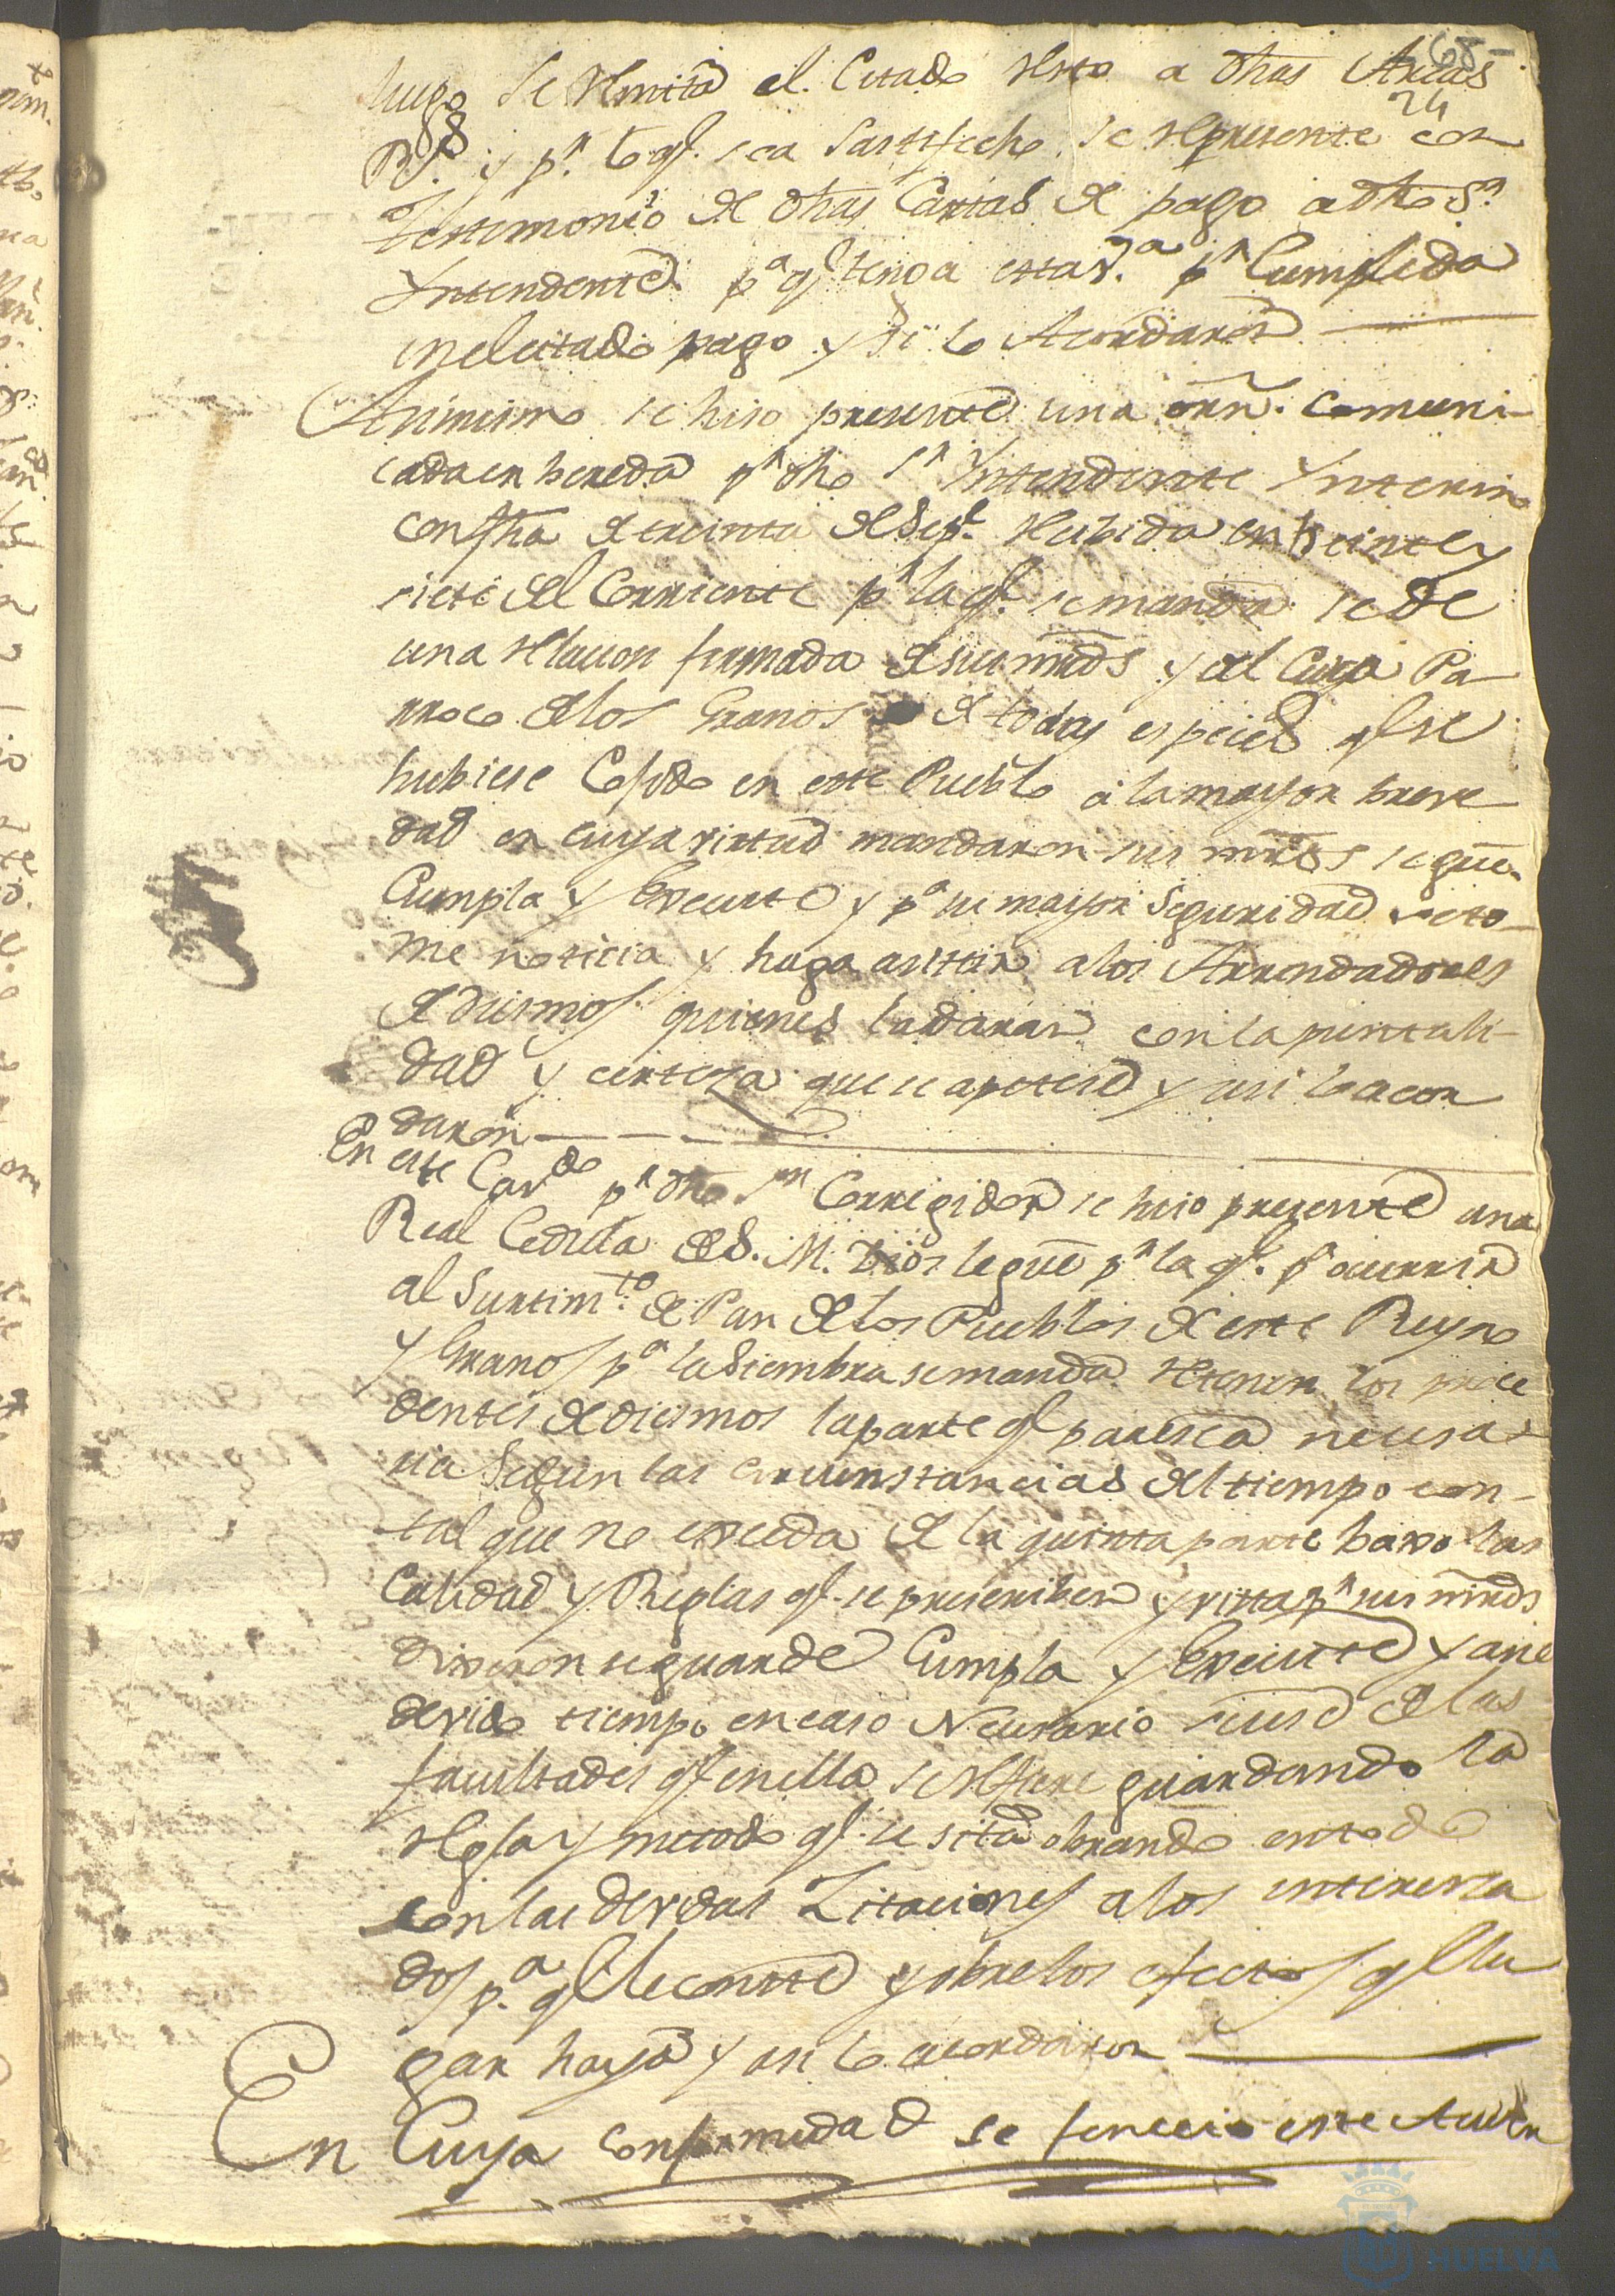 68
24
luego se Remita el Citado Resto a dhas Arcas
Rs. y pr. lo qe. sea Sattisfecho se Represente con
testimonio de dhas Cartas de pago a dho Sr.
Yntendente pa. qe tenga esta Va. pr. Cumplida
en el citado pago y asi lo Acordaron
Asimismo se hiso presente una orn. comuni-
cada en bereda pr. dho Sr. Yntendente Ynterino
con fha de treinta de Sepe. Resibida en beinte y
siete del Corriente pr. la qe. se manda se de
una Relacion firmada de sus mrds y del Cura Pa-
rroco de los Granos de todas especies qe se
hubiese Cojido en este Pueblo a la mayor breve
dad en cuya virtud mandaron sus mrds se gue.
Cumpla y Execute y pa. su mayor Seguridad se to-
me noticia y haga asitar a los Arrendadores
de diesmos quienes la daran con la puntuali-
dad y certeza que se apetese y asi lo acor
daron
En este Cavdo. pr. dho Sor. Corregidor se hiso presente una
Real Cedula de S. M. Dios le gue pr. la qe. pa. ocurrir
al Surtimto. de Pan de los Pueblos de este Reyno
y Granos pa. la Siembra se manda Retener los proce
dentes de diesmos la parte qe paresca necesa-
ria Segun las circunstancias del tiempo con-
tal que no exceda de la quinta parte baxo las
Calidad y Reglas qe. se prescriben y vista pr. sus mrds
dixeron se guarde Cumpla y Execute y a su
devido tiempo en caso Necesario se use de las
facultades qe en ella se Refiere guardando la
Regla y metodo qe. se sita obrando en todo
con las devidas Zitaciones a los interesa
dos pa. qe les conste y obre los efectos qe lu
gar haya y asi lo acordaron
En Cuya conformidad se fenecio este
HUELVA